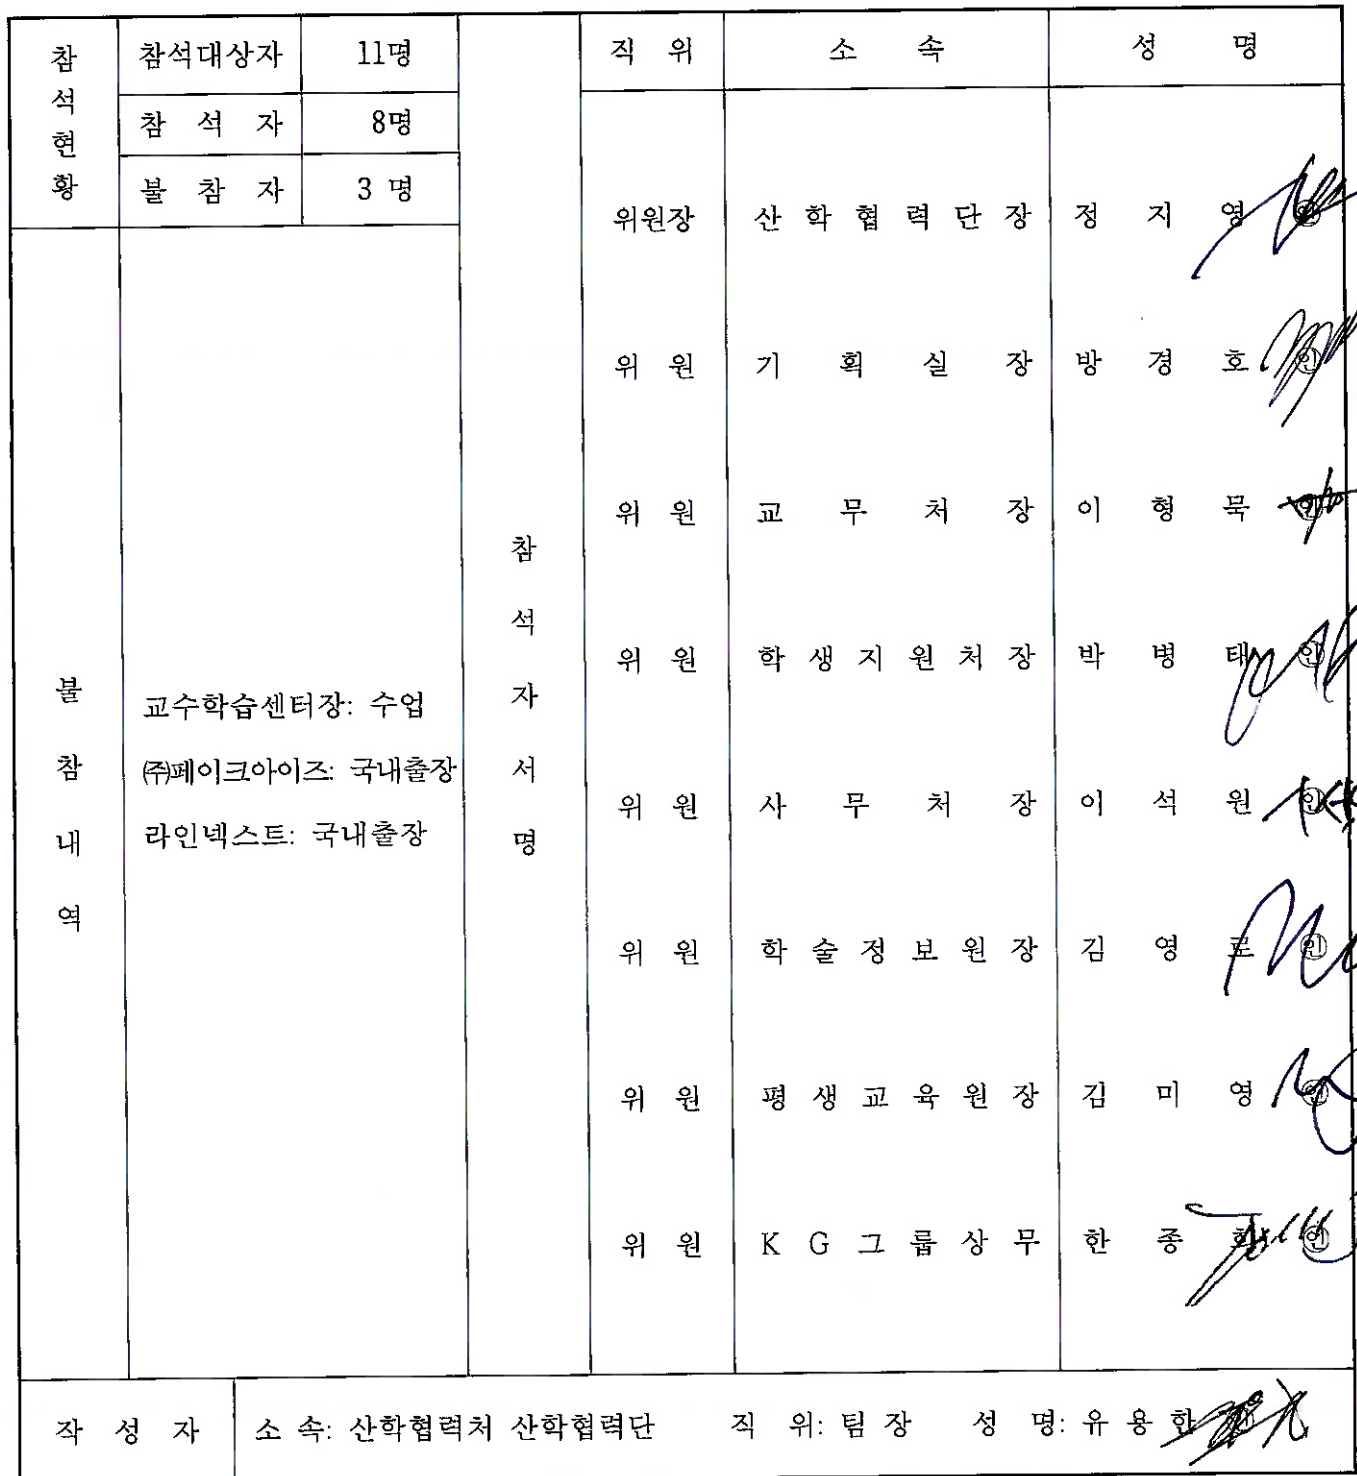 참석현황
참석대상자 11명
참 석 자 8명
불 참 자 3 명
불참내역
교수학습센터장: 수업
㈜페이크아이즈: 국내출장
라인넥스트: 국내출장
참석자서명
직 위 소 속 성 명
위원장 산 학 협 력 단 장 정 지 영
위 원 기 획 실 장 방 경 호 ㊞
위 원 교 무 처 장 이 형 묵 ㊞
위 원 학 생 지 원 처 장 박 병 태 ㊞
위 원 사 무 처 장 이 석 원 ㊞
위 원 학 술 정 보 원 장 김 영 ㊞
위 원 평 생 교 육 원 장 김 미 영 ㊞
위 원 K G 그 룹 상 무 한 종 ㊞
작 성 자 소 속: 산학협력처 산학협력단 직 위: 팀 장 성 명: 유 용 한